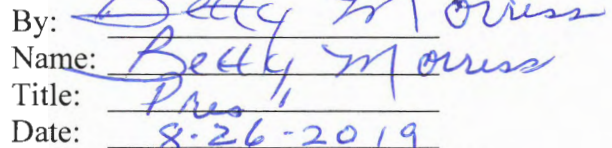 By: Betty Morriss
Name: Betty Morriss
Title: Pres
Date: 8-26-2019